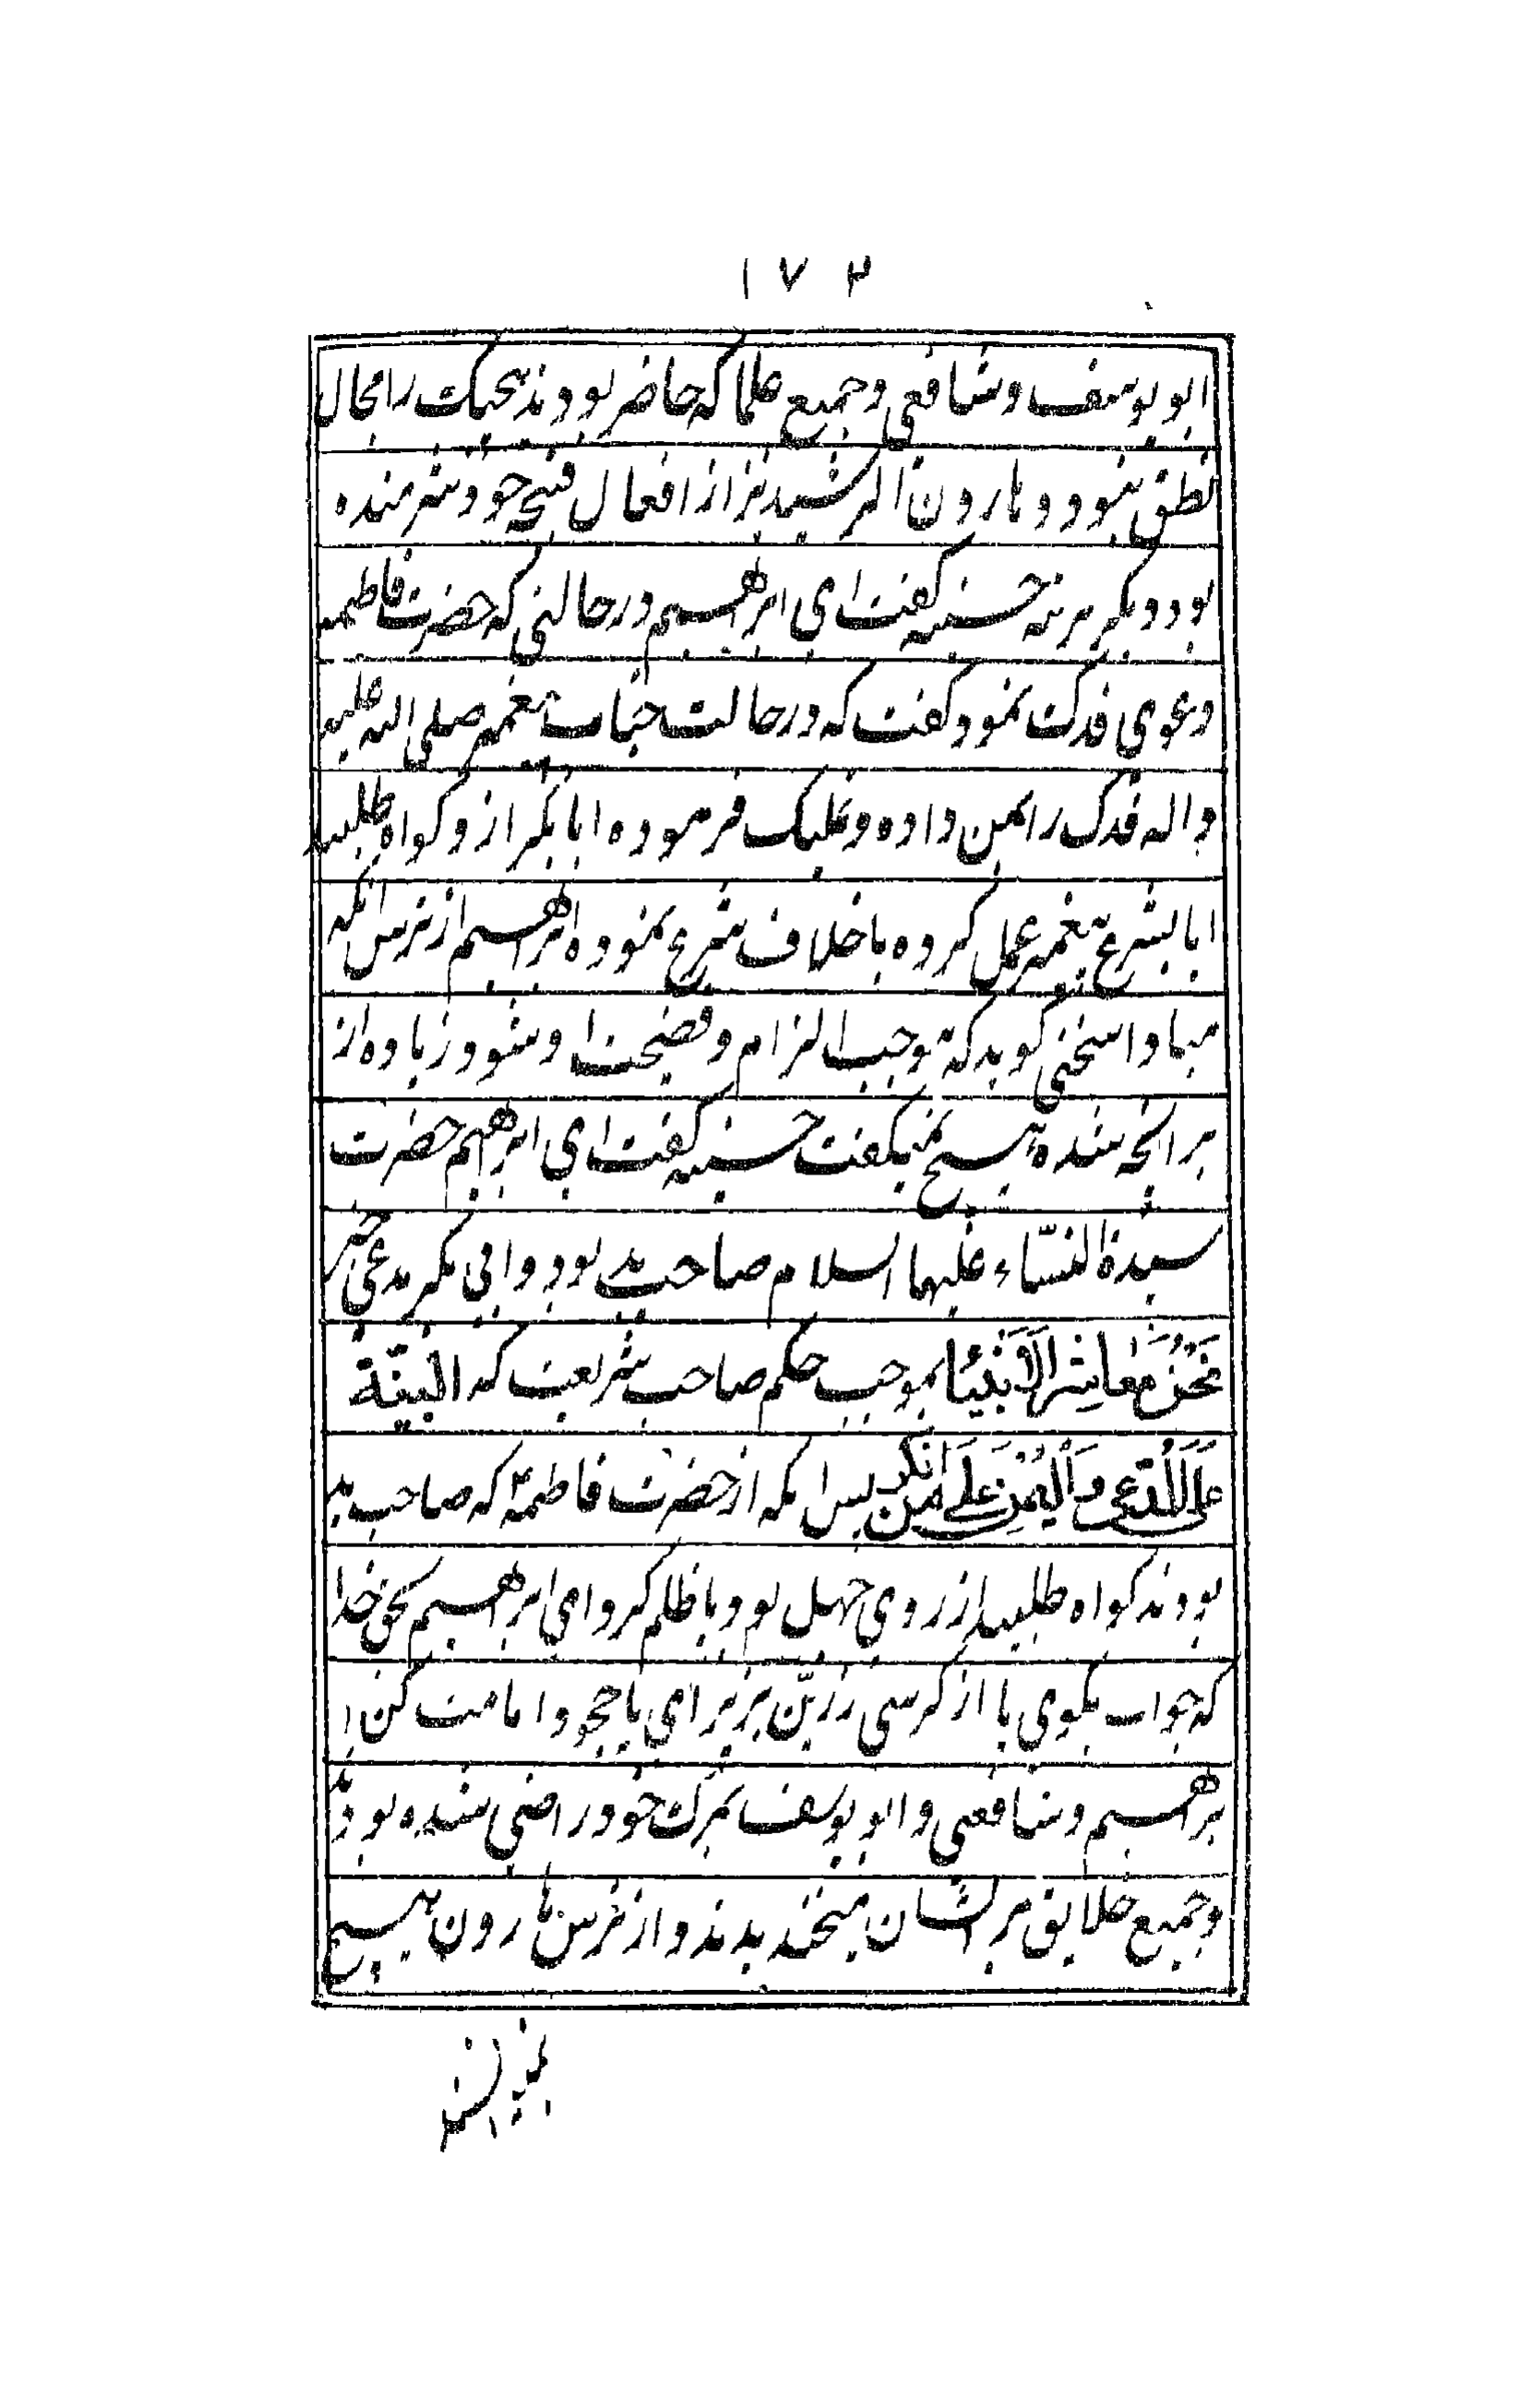 ۱۷۴
ابو یوسف و شافعی و جمیع علما که حاضر بودند هیچیک را مجال
نطق نبود و هارون الرشید نیز از افعال قبیحه خود شرمنده
بود دیگر مرتبه حسنیه کفت ای ابرهیم در حالتی که حضرت فاطمه
دعوی فدک نمود کفت که در حالت حیات پیغمبر صلی الله علیه
و اله فدک را بمن داده و تملیک فرموده ابابکر از و کواه طلبید
ایا بشرع پیغمبر عمل کرده یا خلاف شرع نموده ابرهیم از ترس انکه
مبادا سخنی کوید که موجب الزام و فضیحت او شود زیاده از
برانچه شده هیچ نمیکفت حسنیه کفت ای ابرهیم حضرت
سیدة النساء علیها السلام صاحب ید بود و ابی بکر مدعی خبر
نَحْنُ مَعاشِرَ الْاَنْبِیٰا بموجب حکم صاحب شریعت که البیّنة
عَلَی الْمُدَّعی وَالْیَمینُ عَلیٰ مَنْ اَنْکَر پس انکه از حضرت فاطمه ع که صاحب ید
بودند کواه طلبید از روی جهل بود یا ظلم کرد ای ابرهیم بحق خدا
که جواب بکوی یا از کرسی زرین بزیر ای یا حجود امامت کن ا
برهیم و شافعی و ابو یوسف بمرک خود راضی شده بودند
و جمیع خلایق بر ایشان میخندیدند و از ترس هارون هیچ